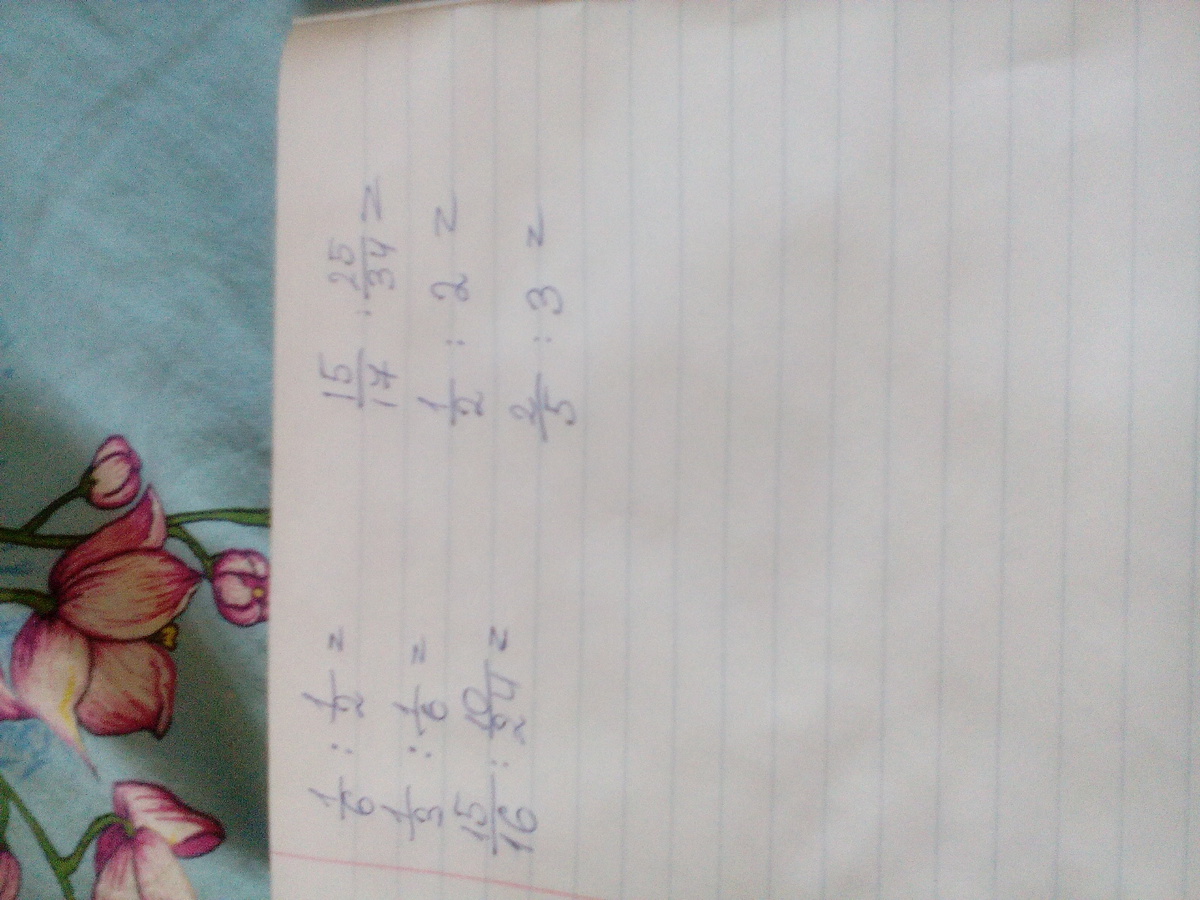 1/6 : 1/2 =
1/3 : 1/6 =
15/16 : 10/24 =
15/17 : 25/34 =
1/2 : 2 =
2/5 : 3 =